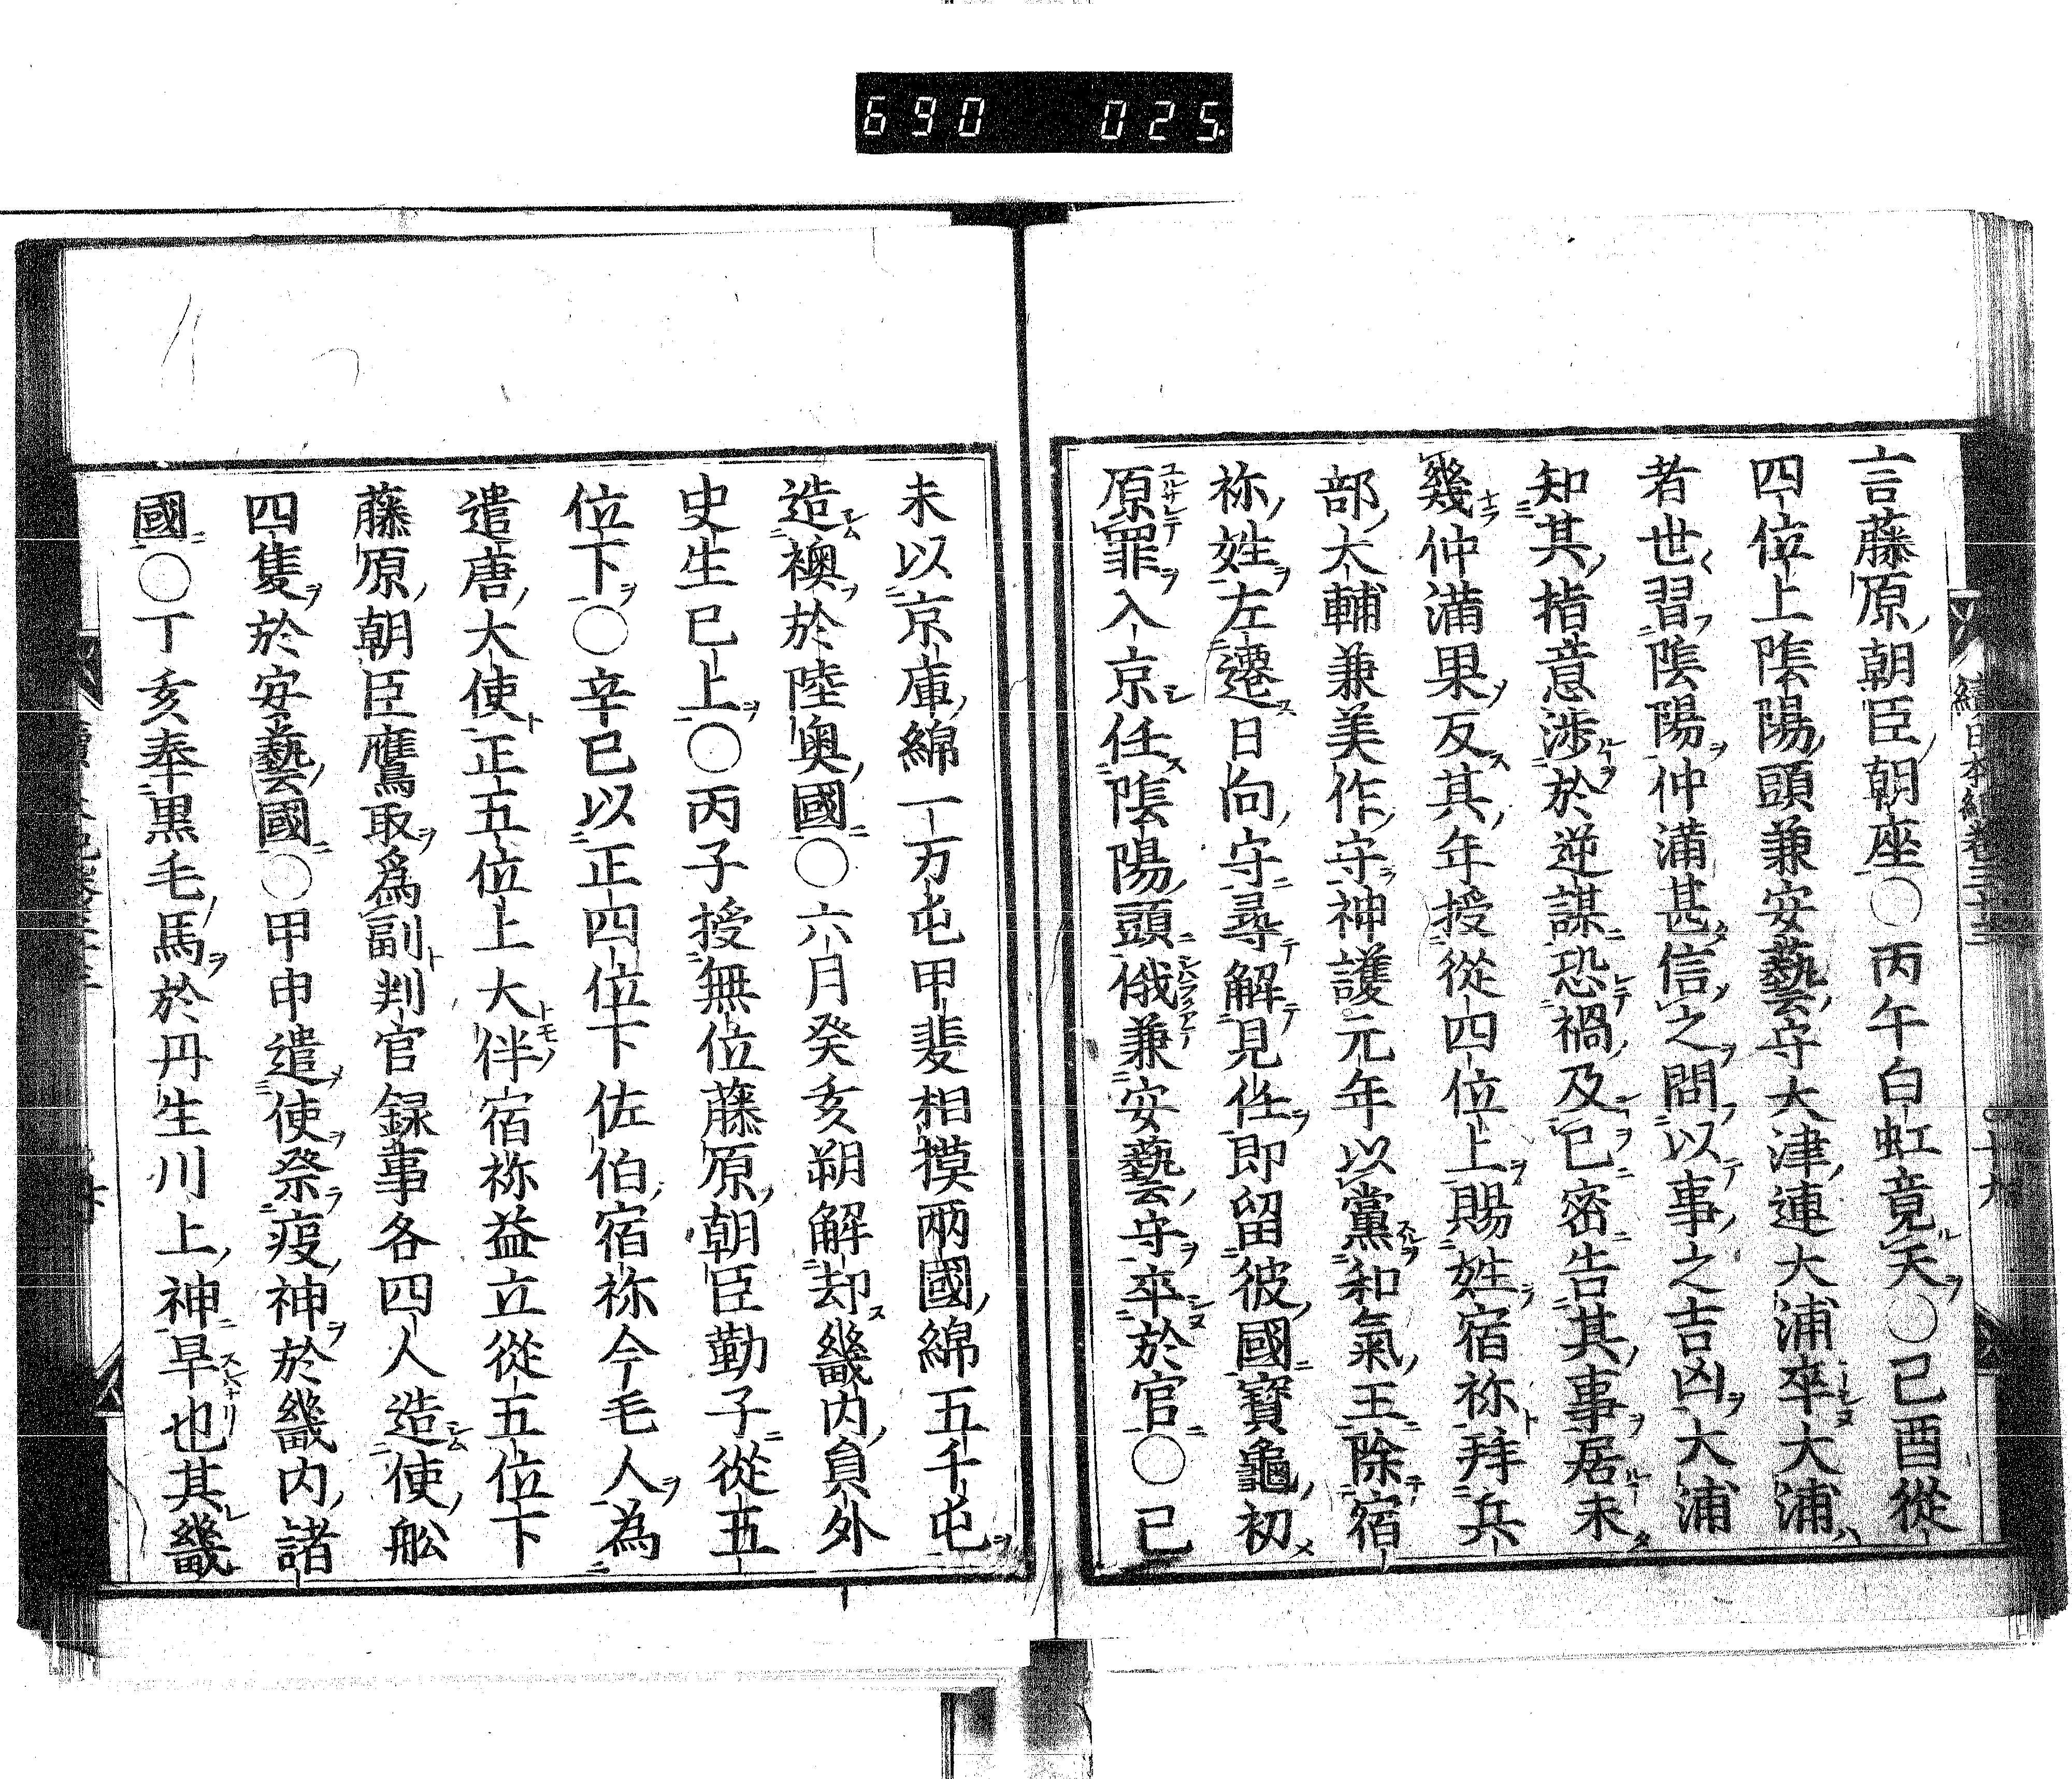 690 025
言藤原朝臣朝座○丙午白虹竟天○己酉從
四位上陰陽頭兼安藝守大津連大浦卒大浦
者世習陰陽仲滿甚信之問以事之吉凶大浦
知其指意涉於逆謀恐禍及已密告其事居未
幾仲滿果反其年授從四位上賜姓宿祢拜兵
部太輔兼美作守神護元年以黨和氣王除宿
祢姓左遷日向守尋解見任即留彼國寶龜初
原罪入京任陰陽頭俄兼安藝守卒於官○己
未以京庫綿一万屯甲斐相摸兩國綿五千屯
造襖於陸奥國○六月癸亥朔解却畿内員外
史生已上○丙子授無位藤原朝臣勤子從五
位下○辛已以正四位下佐伯宿祢今毛人為
遣唐大使正五位上大伴宿祢益立從五位下
藤原朝臣鷹取爲副判官録事各四人造使舩
四隻於安藝國○甲申遣使祭疫神於畿内諸
國○丁亥奉黒毛馬於丹生川上神旱也其畿